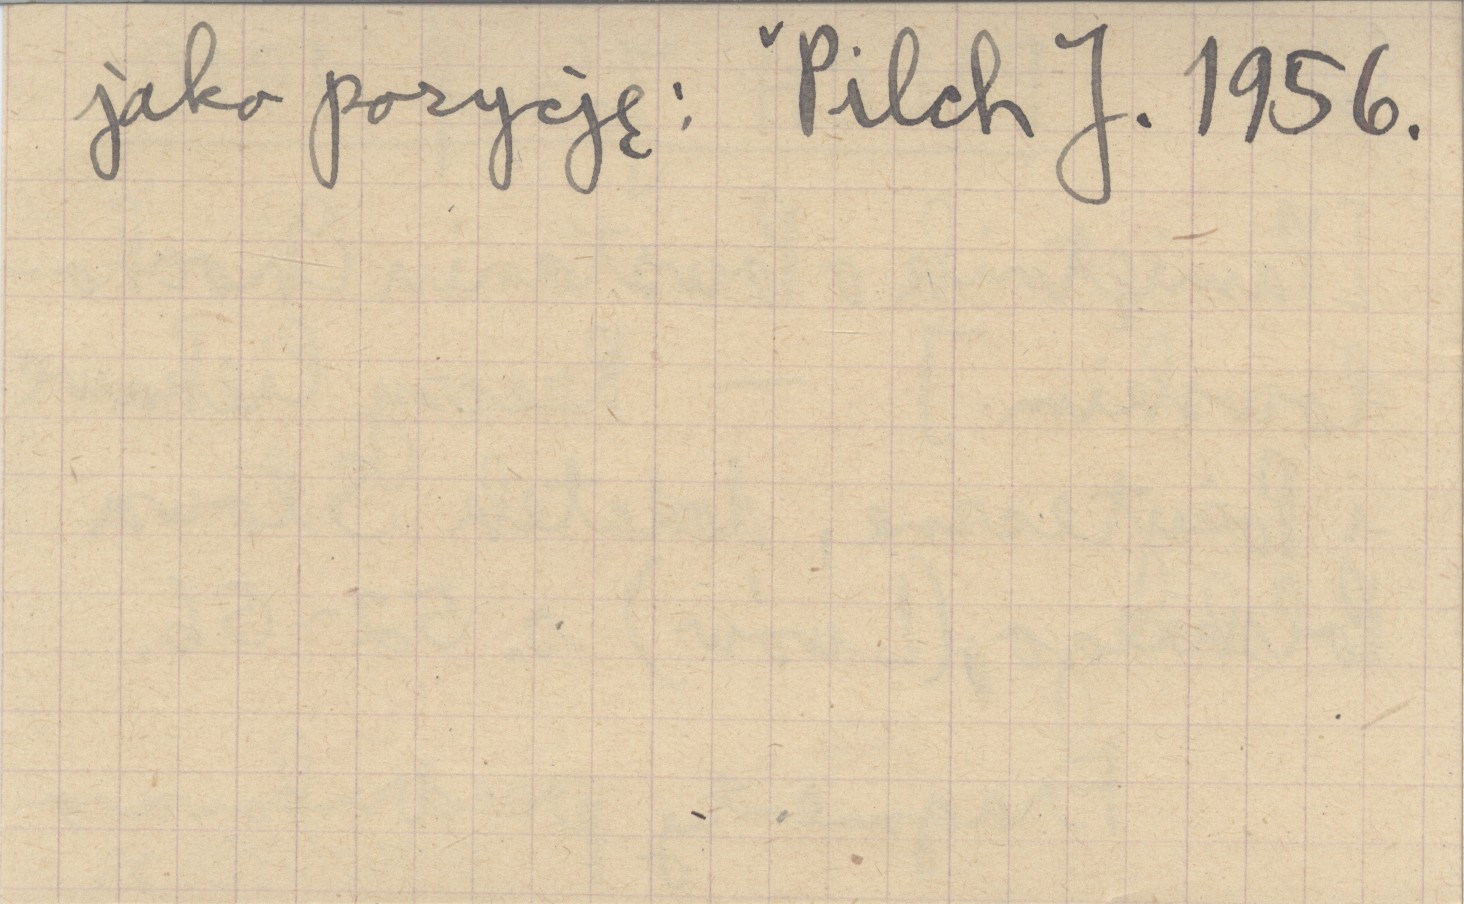 jako pozycję: ˇPilch J. 1956.